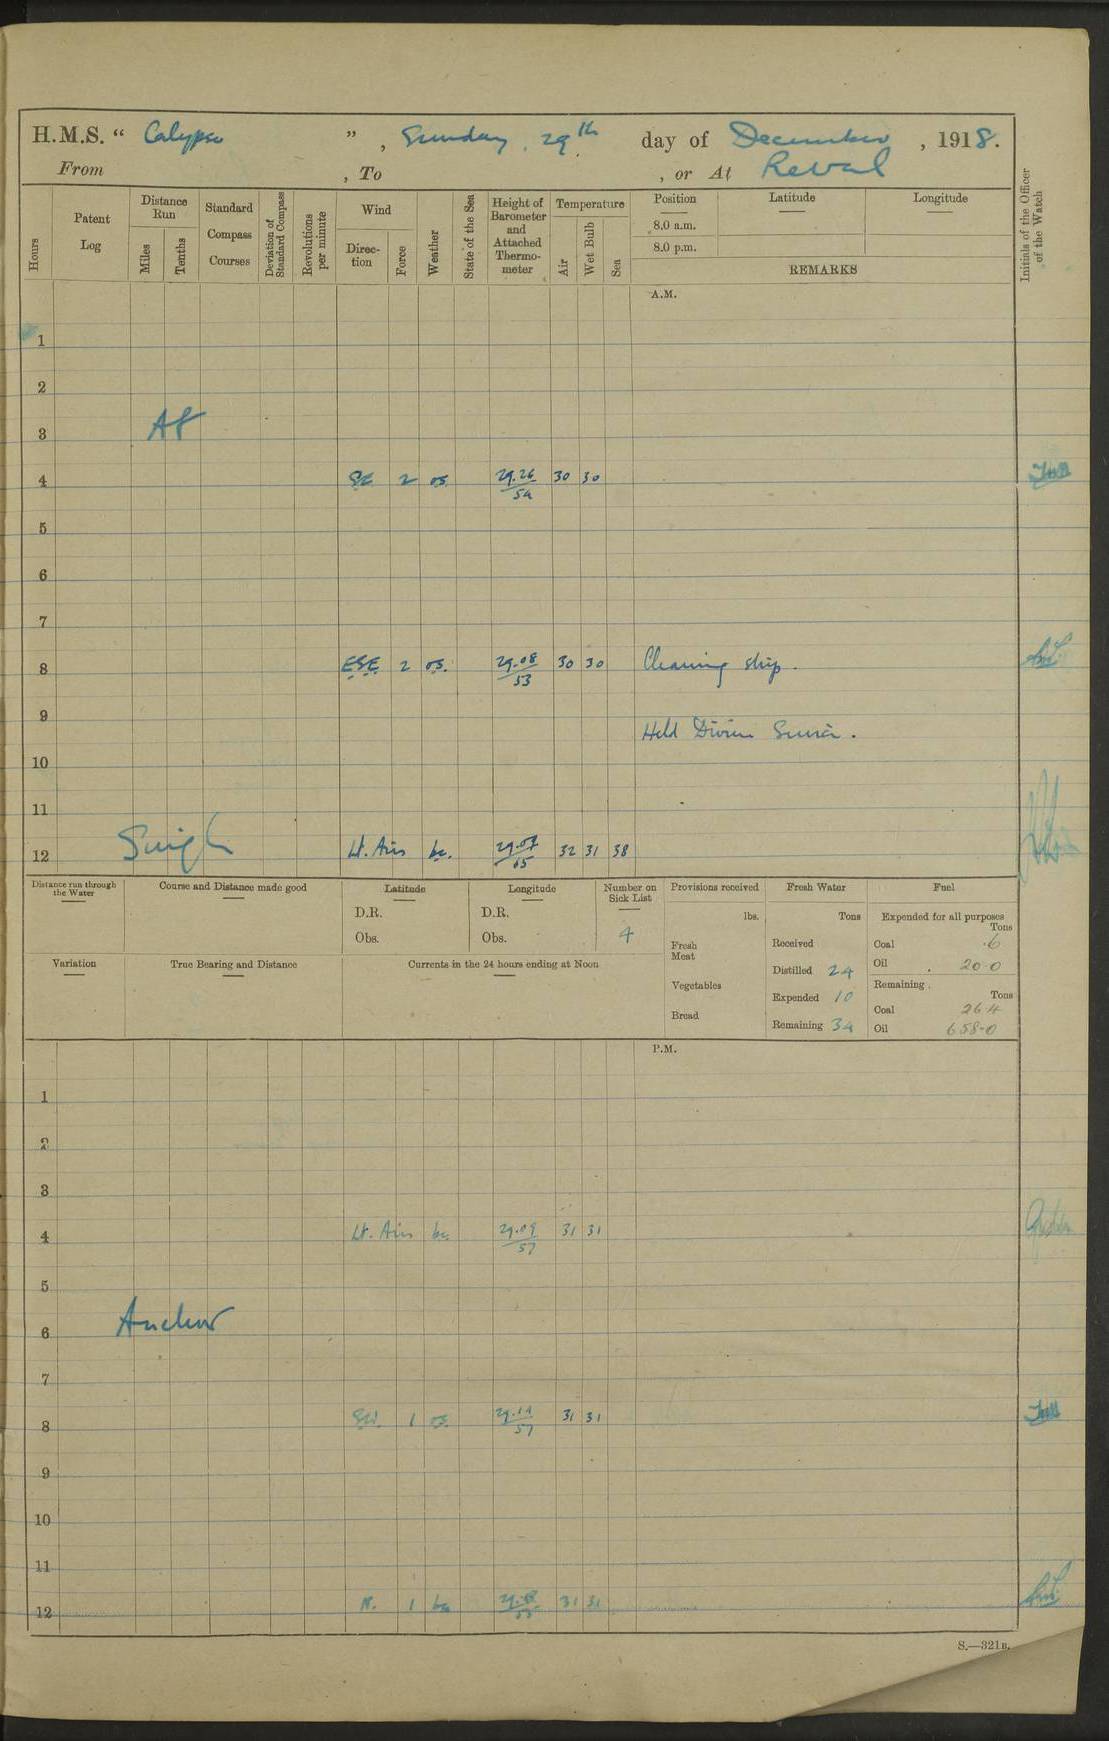 H.M.S. “ Calypso ”, Sunday, 29th day of December, 1918.
From , To , or At Reval
Hours
Patent Log
Distance Run
Miles
Tenths
Standard Compass Courses
Deviation of Standard Compass
Revolutions per minute
Wind
Direc-tion
Force
Weather
State of the Sea
Height of Barometer and Attached Thermo-meter
Temperature
Air
Wet Bulb
Sea
Position
8.0 a.m.
8.0 p.m.
Latitude
Longitude
REMARKS
Initials of the Officer of the Watch
A.M.
1
2
At
3
4 SE 2 os. 29.26/54 30 30
5
6
7
8 ESE 2 os. 29.08/53 30 30 Cleaning ship.
9
Held Divine Service.
10
11
12 Single Lt. Airs bc. 32 31 38
Distance run through the Water
Course and Distance made good
Latitude
D.R.
Obs.
Longitude
D.R.
Obs.
Number on Sick List
4
Provisions received
lbs.
Fresh Meat
Vegetables
Bread
Fresh Water
Tons
Received
Distilled 24
Expended 10
Remaining 34
Fuel
Expended for all purposes
Tons
Coal .6
Oil 20.0
Remaining.
Tons
Coal 26.4
Oil 658.0
Variation
True Bearing and Distance
Currents in the 24 hours ending at Noon
P.M.
1
2
3
4 Lt. Airs bc. 29.09/57 31 31
5
Anchor
6
7
8 SW. 1 os. 29.14/57 31 31
9
10
11
12 N. 1 bc 31 31
S.—321B.